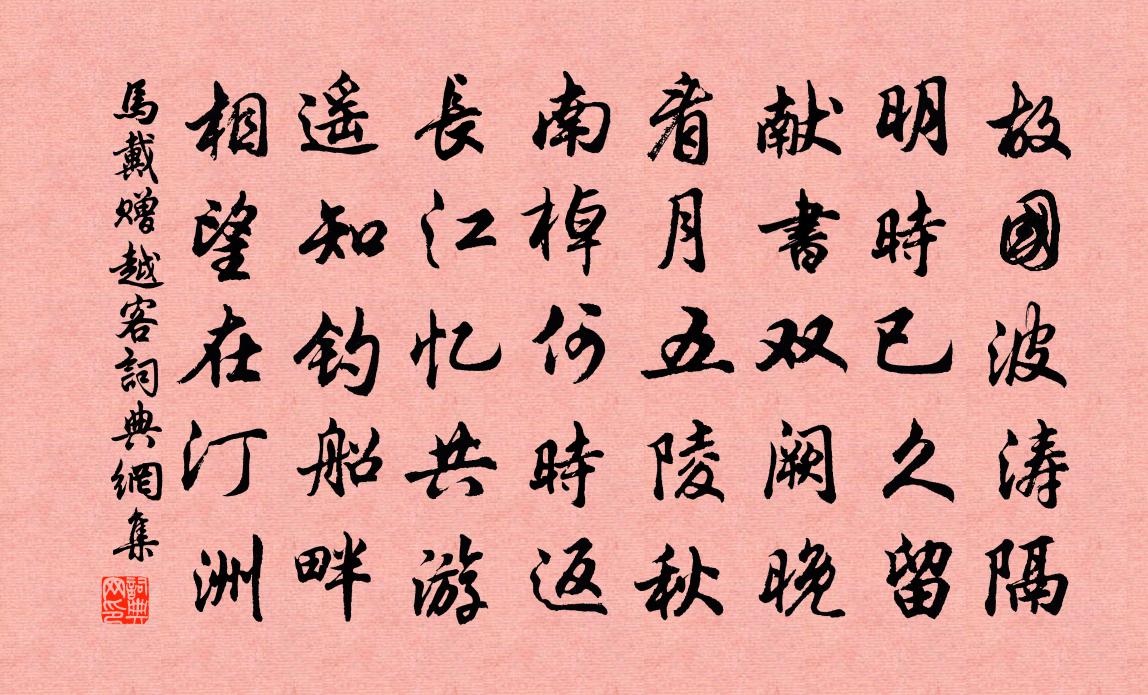 故國波涛隔
明時已久留
献書双阙晚
看月五陵秋
南棹何時返
長江忆共游
遥知钓船畔
相望在汀洲
馬戴赠越客詞典網集
詞典网印